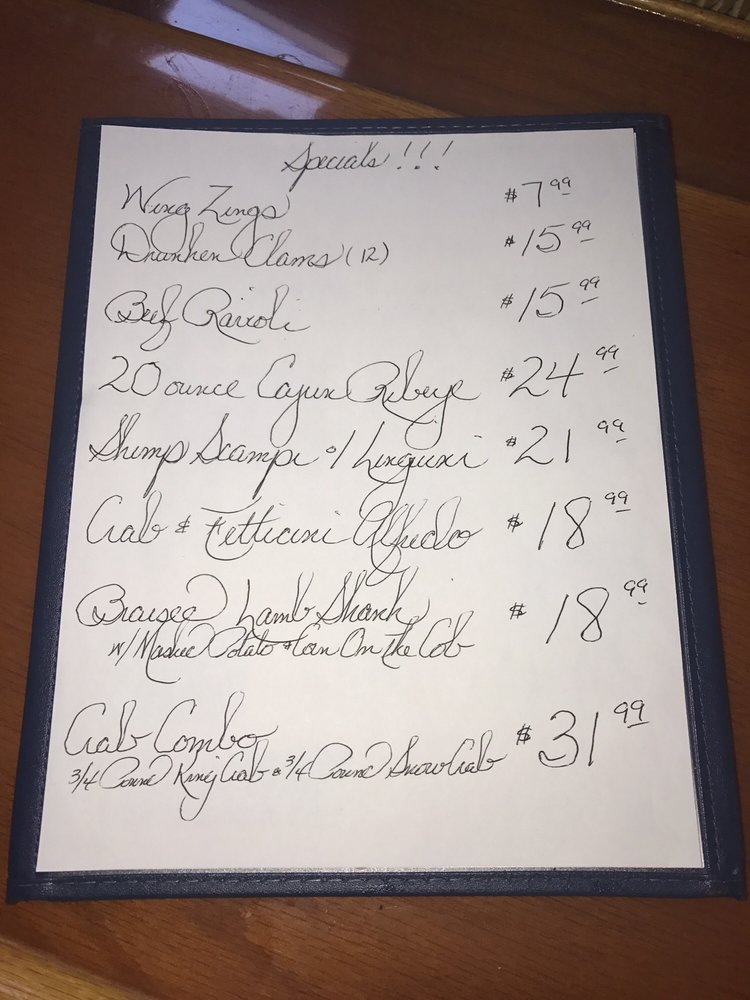 Specials!!!
Wing Zings $7.99
Drunken Clams (12) $15.99
Beef Ravioli $15.99
20 ounce Cajun Ribeye $24.99
Shrimp Scampi o/ Linguini $21.99
Crab & Fetticini Alfredo $18.99
Braised Lamb Shank $18.99
w/ Mashed Potato & Corn On The Cob
Crab Combo $31.99
3/4 Pound King Crab & 3/4 Pound Snow Crab